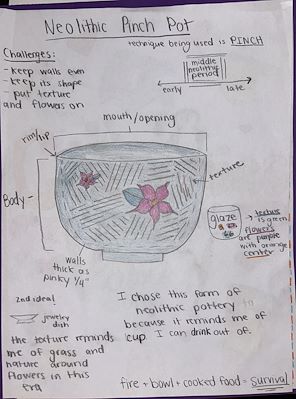 Neolithic Pinch Pot
technique being used is PINCH
Challenges:
- keep walls even
- keep its shape
- put texture
and flowers on
middle
neolithic
period
early
late
mouth/opening
rim/lip
texture
Body -
glaze
→ texture
is green
flowers
are purple
with orange
center
walls
thick as
pinky 1/4"
2nd idea!
jewelry
dish
the texture reminds
me of grass and
nature around
flowers in this
era
I chose this form of
neolithic pottery
because it reminds me of
cup I can drink out of.
fire + bowl + cooked food = survival